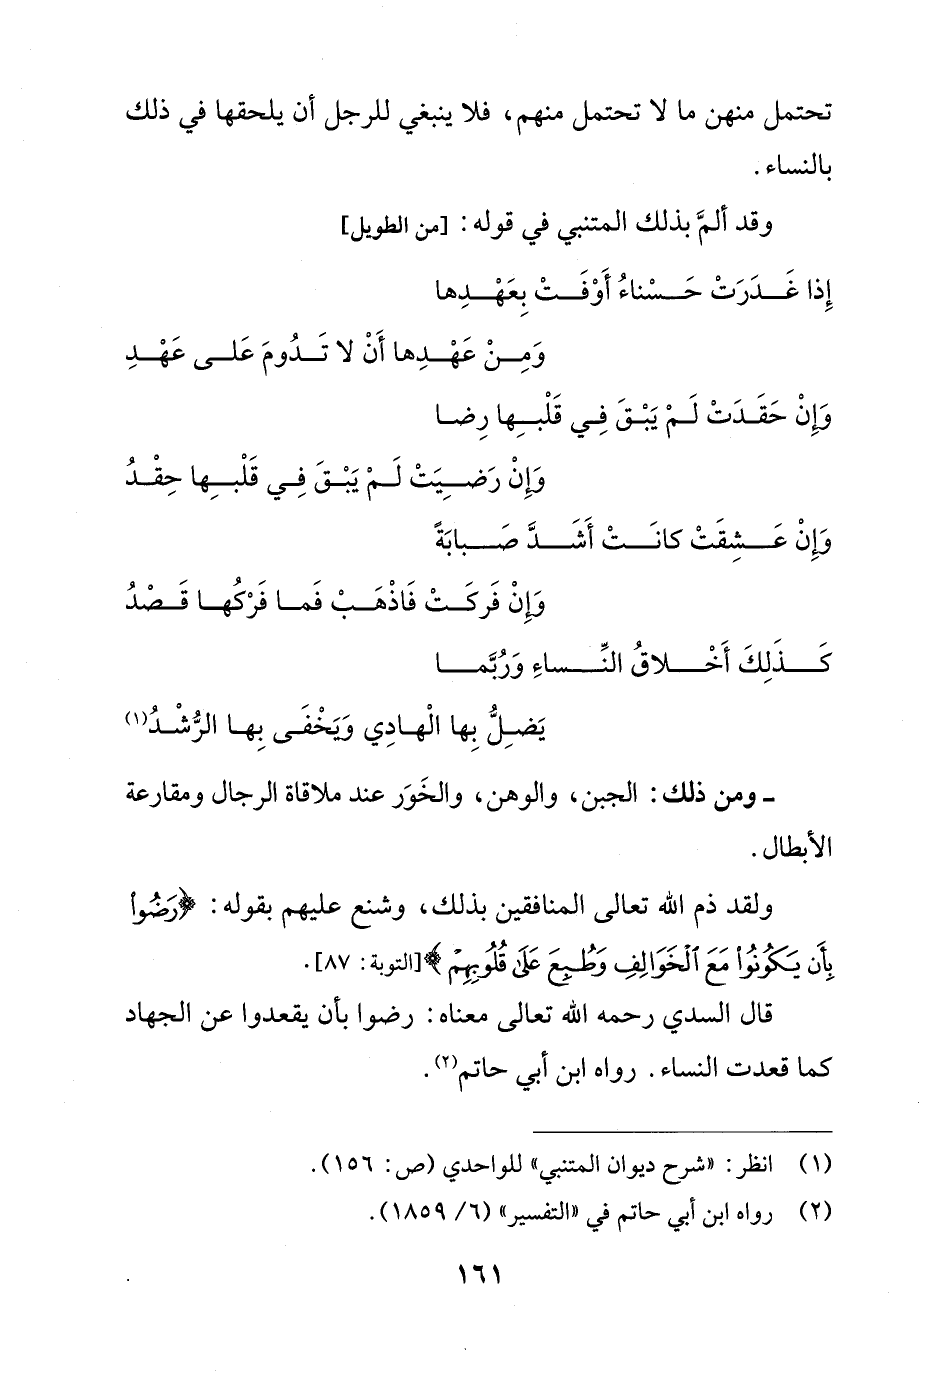 تحتمل منهن ما لا تحتمل منهم، فلا ينبغي للرجل أن يلحقها في ذلك
بالنساء.
وقد ألمَّ بذلك المتنبي في قوله: [من الطويل]
إِذا غَـدَرَتْ حَـسْناءُ أَوْفَـتْ بِعَهْـدِها
وَمِـنْ عَهْـدِها أَنْ لا تَـدُومَ عَلـى عَهْـدِ
وَإِنْ حَقَـدَتْ لَـمْ يَبْـقَ فِـي قَلْبِـها رِضـا
وَإِنْ رَضِـيَتْ لَـمْ يَبْـقَ فِـي قَلْبِـها حِقْـدُ
وَإِنْ عَـشِقَتْ كانَـتْ أَشَـدَّ صَـبابَةً
وَإِنْ فَرِكَـتْ فَاذْهَـبْ فَمـا فَرْكُهـا قَـصْدُ
كَـذَلِكَ أَخْـلاقُ النِّـساءِ وَرُبَّمـا
يَضِلُّ بِها الْهـادِي وَيَخْفَـى بِهـا الرُّشْـدُ(١)
ـ ومن ذلك: الجبن، والوهن، والخَوَر عند ملاقاة الرجال ومقارعة
الأبطال.
ولقد ذم الله تعالى المنافقين بذلك، وشنع عليهم بقوله: ﴿رَضُوا۟
بِأَن يَكُونُوا۟ مَعَ ٱلْخَوَالِفِ وَطُبِعَ عَلَىٰ قُلُوبِهِمْ﴾[التوبة: ٨٧].
قال السدي رحمه الله تعالى معناه: رضوا بأن يقعدوا عن الجهاد
كما قعدت النساء. رواه ابن أبي حاتم(٢).
(١) انظر: «شرح ديوان المتنبي» للواحدي (ص: ١٥٦).
(٢) رواه ابن أبي حاتم في «التفسير» (٦/ ١٨٥٩).
١٦١